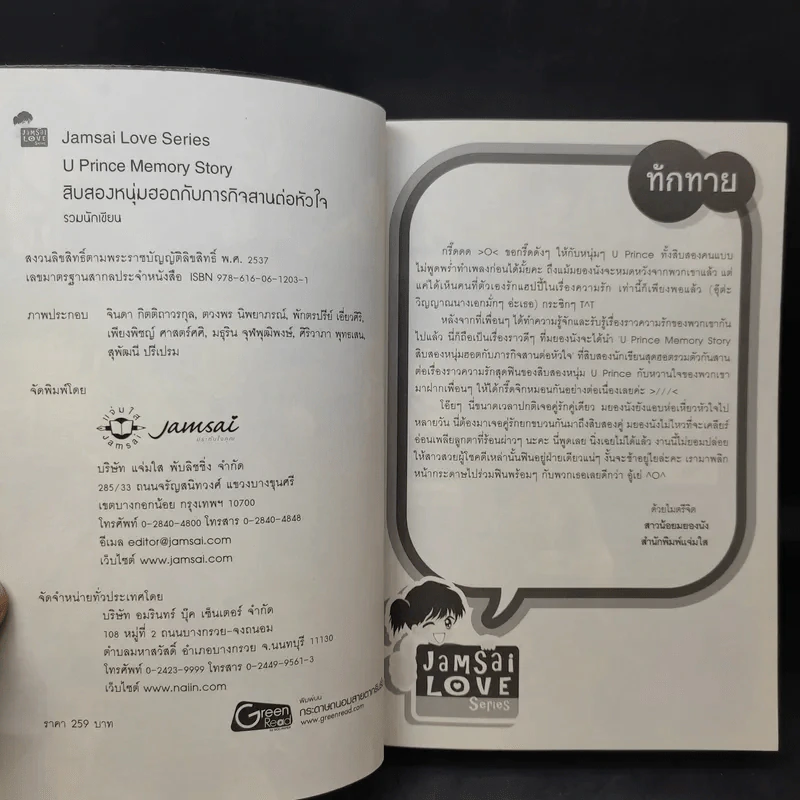 JAMSAI
LOVE
Series
Jamsai Love Series
U Prince Memory Story
สิบสองหนุ่มฮอตกับภารกิจสานต่อหัวใจ
รวมนักเขียน
สงวนลิขสิทธิ์ตามพระราชบัญญัติลิขสิทธิ์ พ.ศ. 2537
เลขมาตรฐานสากลประจำหนังสือ ISBN 978-616-06-1203-1
ภาพประกอบ จินดา กิตติถาวรกุล, ตวงพร นิพยาภรณ์, พักตรปรีย์ เอี่ยวศิริ,
เพียงพิชญ์ ศาสตร์ศศิ, มธุริน จุฬพุฒิพงษ์, ศิริวาภา พุทธเสน,
สุพัฒนี ปรีเปรม
จัดพิมพ์โดย
แจ่มใส
Jamsai
Jamsai
บริษัท แจ่มใส พับลิชชิ่ง จำกัด
285/33 ถนนจรัญสนิทวงศ์ แขวงบางขุนศรี
เขตบางกอกน้อย กรุงเทพฯ 10700
โทรศัพท์ 0-2840-4800 โทรสาร 0-2840-4848
อีเมล editor@jamsai.com
เว็บไซต์ www.jamsai.com
จัดจำหน่ายทั่วประเทศโดย
บริษัท อมรินทร์ บุ๊ค เซ็นเตอร์ จำกัด
108 หมู่ที่ 2 ถนนบางกรวย-จงถนอม
ตำบลมหาสวัสดิ์ อำเภอบางกรวย จ.นนทบุรี 11130
โทรศัพท์ 0-2423-9999 โทรสาร 0-2449-9561-3
เว็บไซต์ www.naiin.com
Green
Read
พิมพ์บน
กระดาษถนอมสายตากรีนรี้ด
www.greenread.com
ราคา 259 บาท
ทักทาย
กรี๊ดดด >O< ขอกรี๊ดดังๆ ให้กับหนุ่มๆ U Prince ทั้งสิบสองคนแบบ
ไม่พูดพร่ำทำเพลงก่อนได้มั้ยคะ ถึงแม้มยองนังจะหมดหวังจากพวกเขาแล้ว แต่
แค่ได้เห็นคนที่ตัวเองรักแฮปปี้ในเรื่องความรัก เท่านี้ก็เพียงพอแล้ว (อุ๊ต๊ะ
วิญญาณนางเอกมั่กๆ อ่ะเธอ) กระซิกๆ T^T
หลังจากที่เพื่อนๆ ได้ทำความรู้จักและรับรู้เรื่องราวความรักของพวกเขากัน
ไปแล้ว นี่ก็ถือเป็นเรื่องราวดีๆ ที่มยองนังจะได้นำ 'U Prince Memory Story
สิบสองหนุ่มฮอตกับภารกิจสานต่อหัวใจ' ที่สิบสองนักเขียนสุดฮอตรวมตัวกันสาน
ต่อเรื่องราวความรักสุดฟินของสิบสองหนุ่ม U Prince กับหวานใจของพวกเขา
มาฝากเพื่อนๆ ให้ได้กรี๊ดจิกหมอนกันอย่างต่อเนื่องเลยค่ะ >///<
โอ๊ยๆ นี่ขนาดเวลาปกติเจอคู่รักคู่เดียว มยองนังยังแอบห่อเหี่ยวหัวใจไป
หลายวัน นี่ต้องมาเจอคู่รักยกขบวนกันมาถึงสิบสองคู่ มยองนังไม่ไหวที่จะเคลียร์
อ่อนเพลียลูกตาที่ร้อนผ่าวๆ นะคะ นี่พูดเลย นิ่งเฉยไม่ได้แล้ว งานนี้ไม่ยอมปล่อย
ให้สาวสวยผู้โชคดีเหล่านั้นฟินอยู่ฝ่ายเดียวแน่ๆ งั้นจะช้าอยู่ใยล่ะคะ เรามาพลิก
หน้ากระดาษไปร่วมฟินพร้อมๆ กับพวกเธอเลยดีกว่า อู้เย่ ^O^
ด้วยไมตรีจิต
สาวน้อยมยองนัง
สำนักพิมพ์แจ่มใส
JAMSAI
LOVE
Series